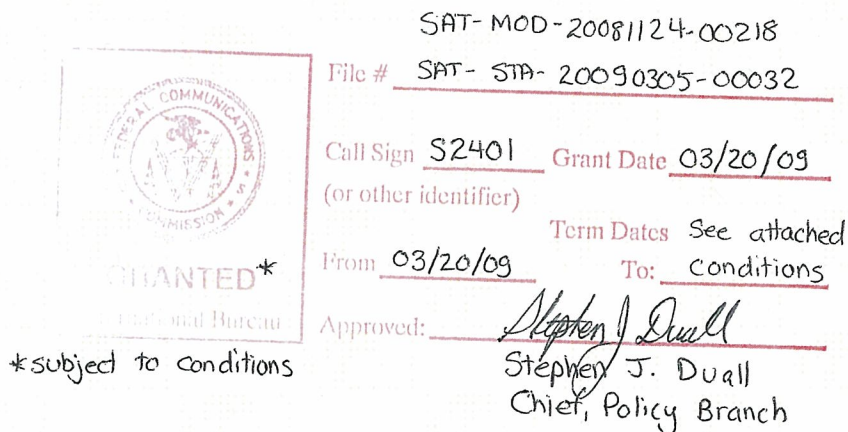 SAT-MOD-20081124-00218
File # SAT-STA-20090305-00032
FEDERAL COMMUNICATIONS COMMISSION
Call Sign S2401 Grant Date 03/20/09
(or other identifier)
Term Dates See attached
From 03/20/09 To: conditions
GRANTED*
International Bureau
Approved: Stephen J Duall
*subject to conditions
Stephen J. Duall
Chief, Policy Branch